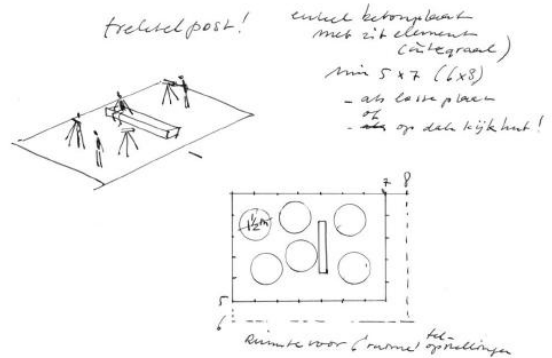 trektelpost!
enkel betonplaat
met zit element
(integraal)
min 5 x 7 (6x8)
- als losse plaat
of
- op dak kijkhut!
7 8
1½m
5
6
Ruimte voor 6 "ruime" tel-
opstellingen